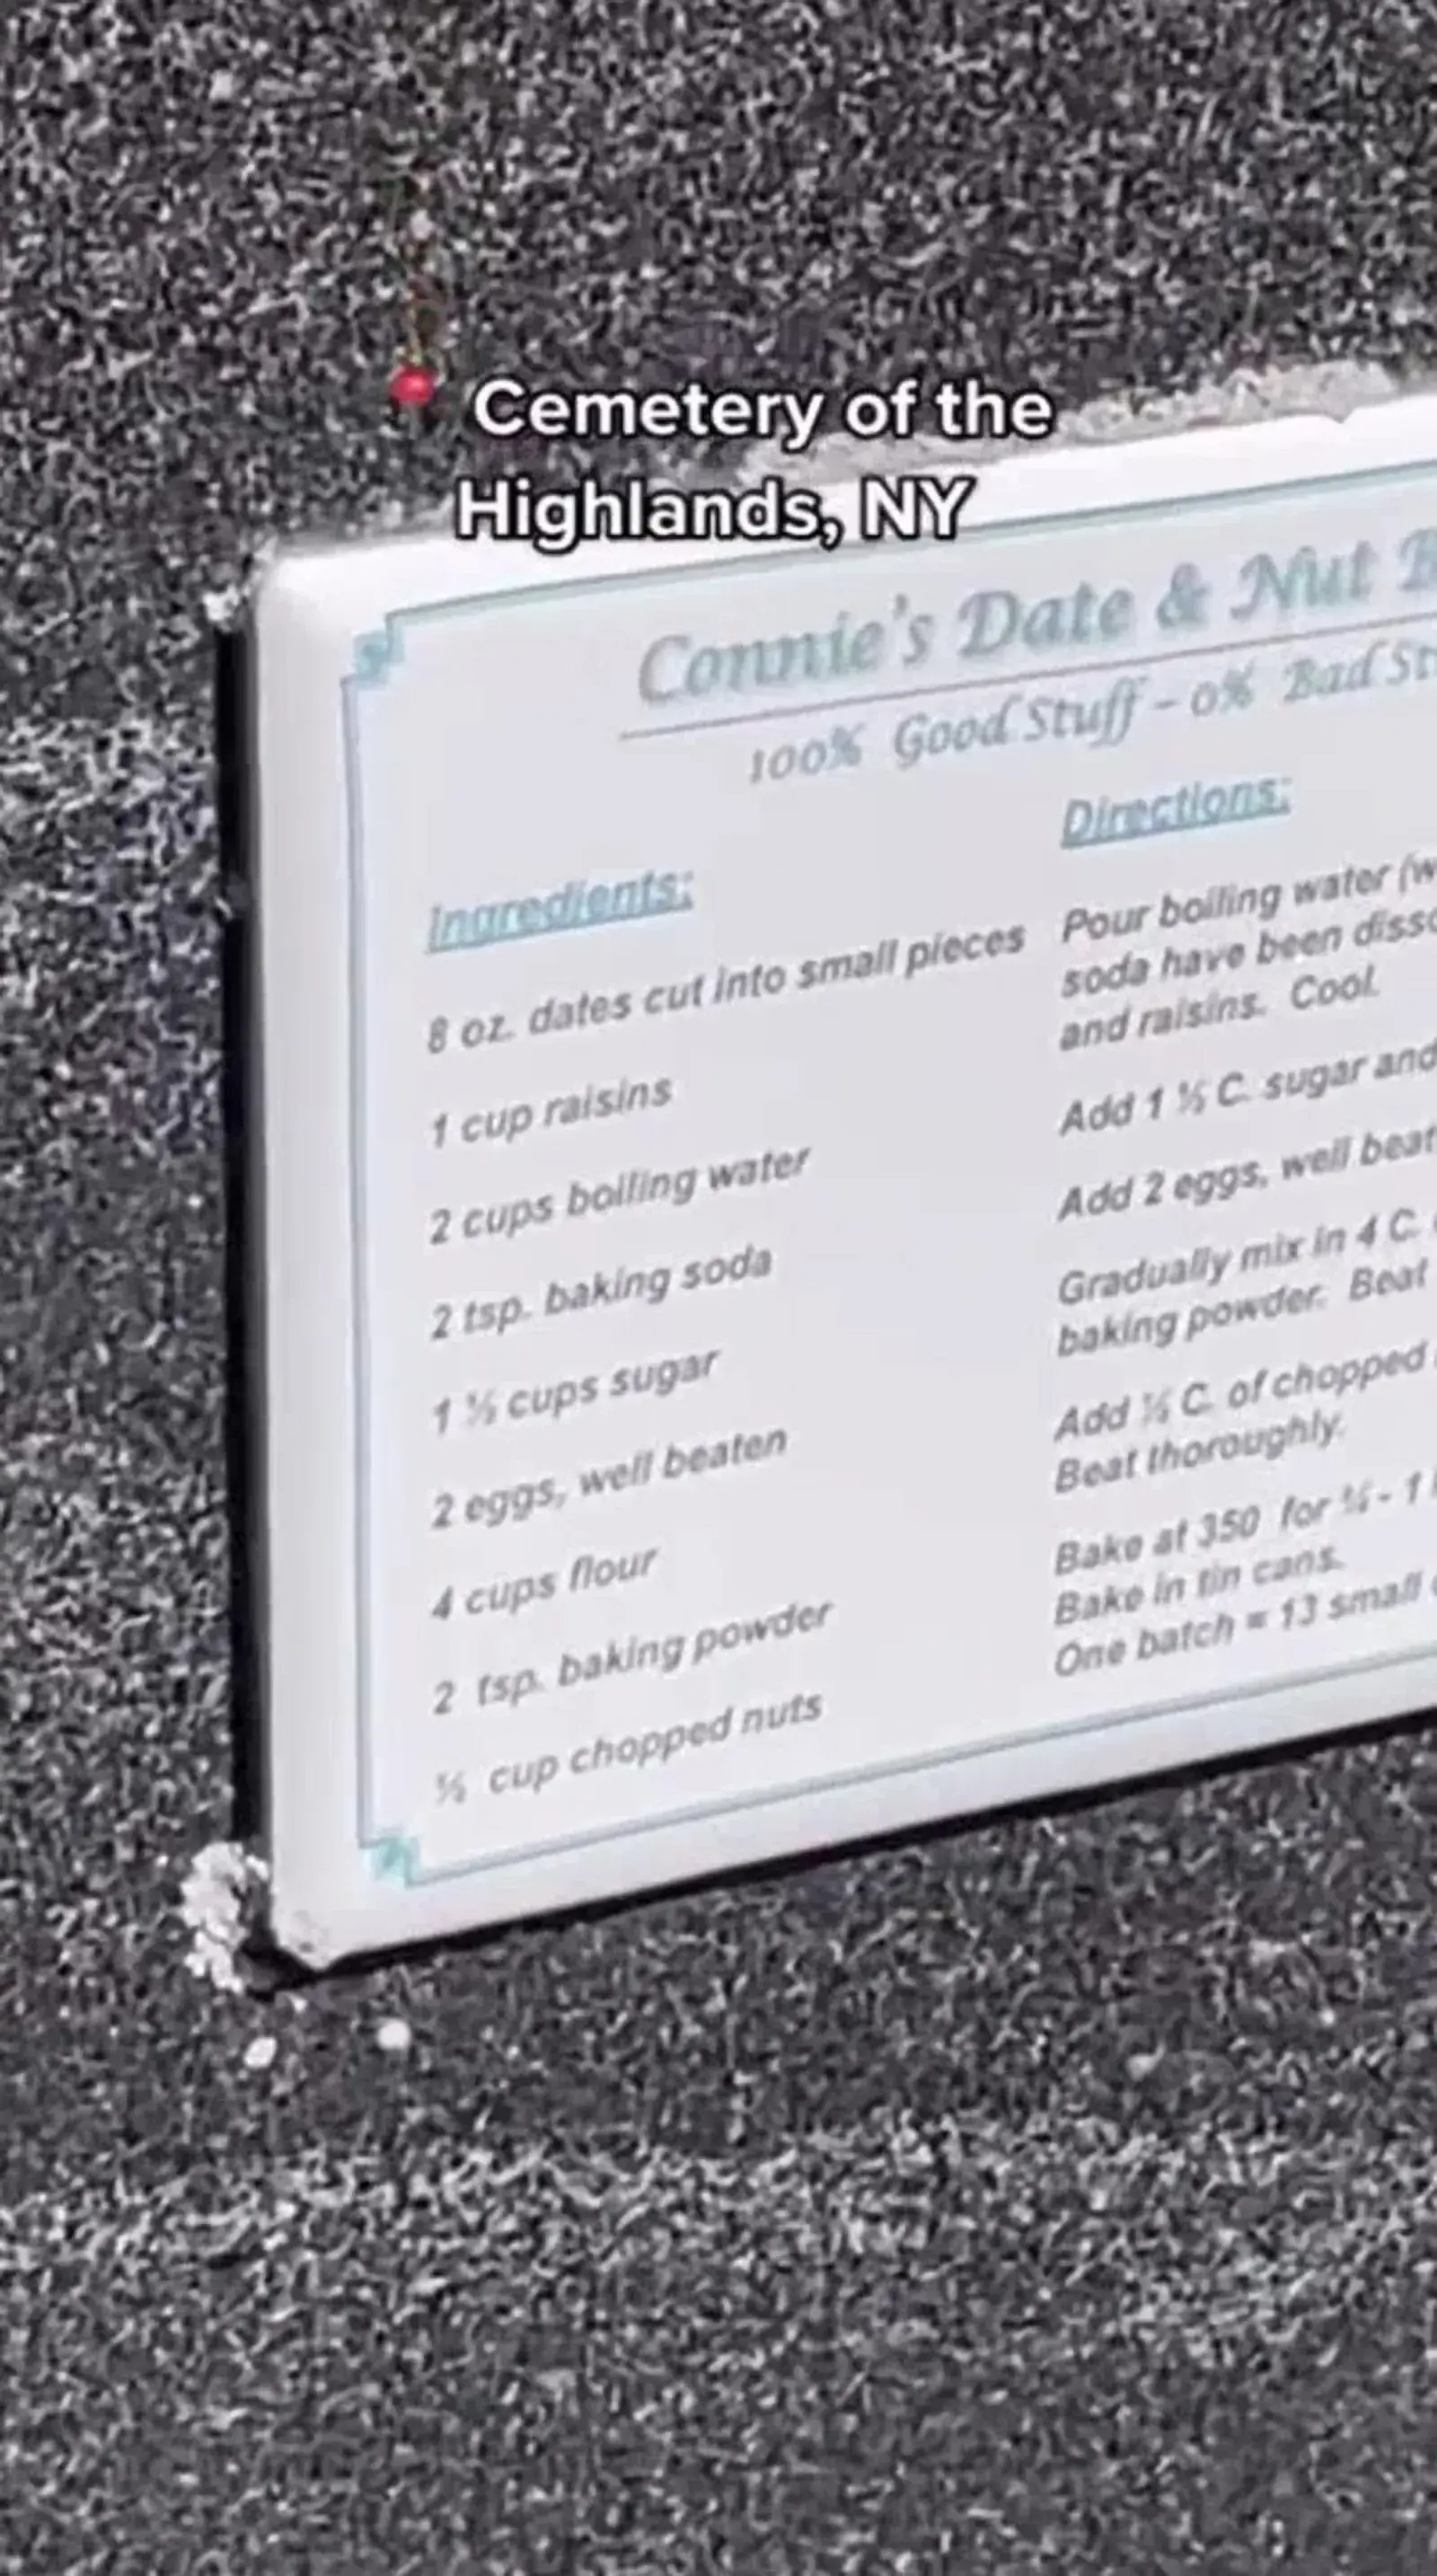 Cemetery of the
Highlands, NY
Connie's Date & Nut
100% Good Stuff - 0% Bad
Ingredients:
8 oz. dates cut into small pieces
1 cup raisins
2 cups boiling water
2 tsp. baking soda
1 ½ cups sugar
2 eggs, well beaten
4 cups flour
2 tsp. baking powder
½ cup chopped nuts
Directions:
Pour boiling water
soda have been
and raisins. Cool.
Add 1 ½ C. sugar and
Add 2 eggs, well
Gradually mix in 4 C.
baking powder. Beat
Add ½ C. of chopped
Beat thoroughly.
Bake at 350 for ¾ - 1
Bake in tin cans.
One batch = 13 small